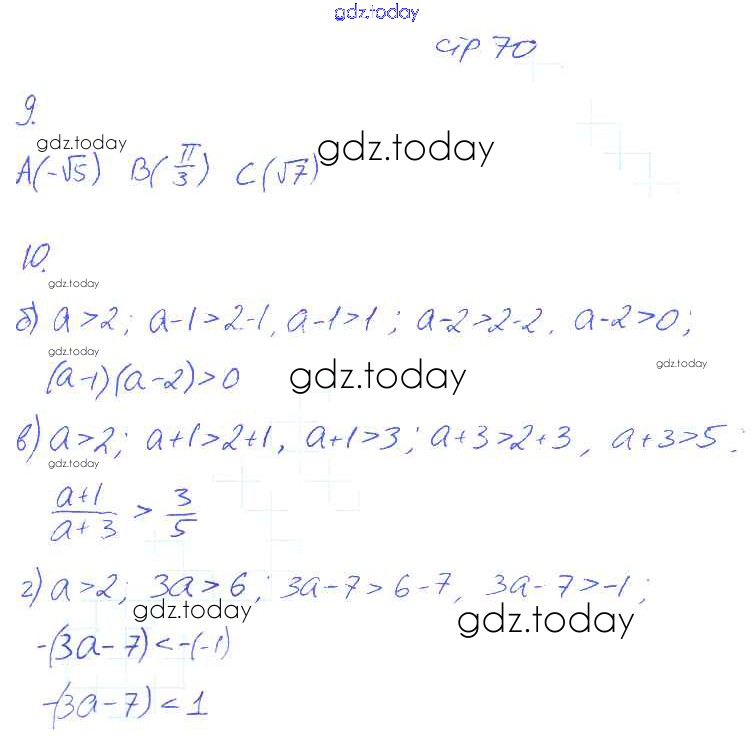 gdz.today
стр 70
9.
gdz.today
A(-√5) B(π/3) C(√7) gdz.today
10.
gdz.today
б) a>2; a-1>2-1, a-1>1; a-2>2-2, a-2>0;
gdz.today
(a-1)(a-2)>0 gdz.today gdz.today
в) a>2; a+1>2+1, a+1>3; a+3>2+3, a+3>5;
gdz.today
(a+1)/(a+3) > 3/5
г) a>2; 3a>6; 3a-7>6-7, 3a-7>-1;
gdz.today gdz.today
-(3a-7)<-(-1)
-(3a-7)<1